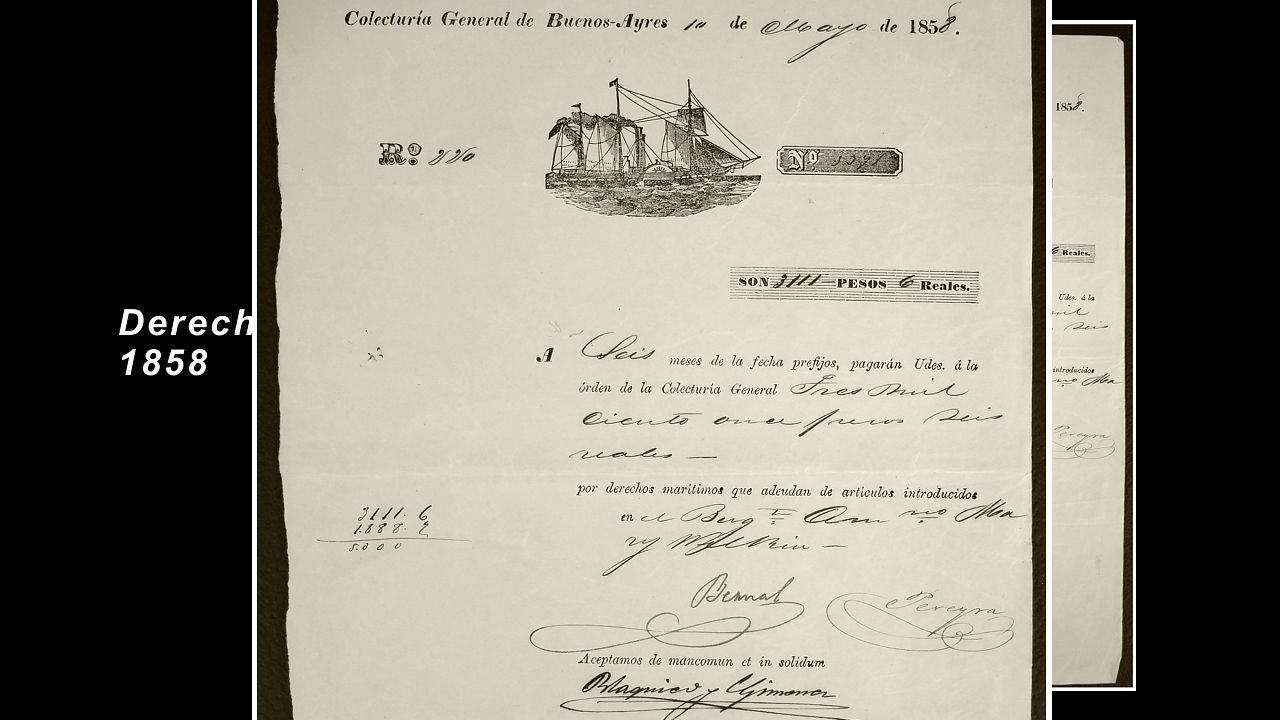 Colecturía General de Buenos-Ayres 10 de Mayo de 1858.
R.º 220
Nº 3391
SON 3111 PESOS 6 Reales.
A Seis meses de la fecha prefijos, pagarán Udes. á la
órden de la Colecturía General Tres mil
ciento once pesos seis
reales —
por derechos maritimos que adeudan de articulos introducidos
en el Berg.ⁿ Am.ⁿᵒ Ma
ry Wilkin —
3111. 6
1.888. 2
5.000
Bernal
Pereyra
Aceptamos de mancomun et in solidum
y Gimenez
Derech
1858
1858.
6 Reales.
Udes. á la
mil
seis
introducidos
no Ma
Pereyra